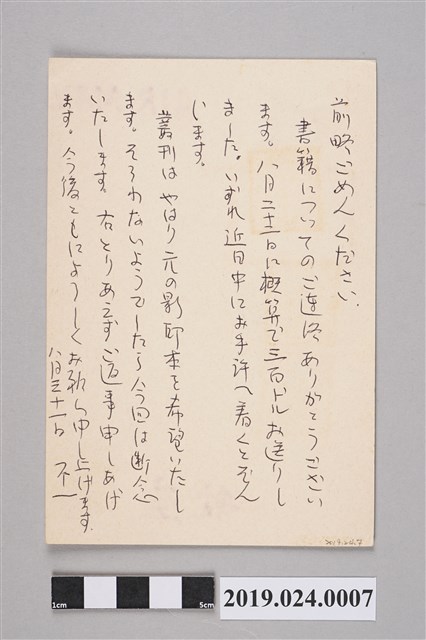 前略ごめんください。
書籍についてのご連絡ありがとうござい
ます。八月二十一日に概算で三百ドルお送りし
ました。いずれ近日中にお手許へ着くとぞん
じます。
叢刊はやはり元の影印本を希望いたし
ます。そろわないようでしたら今回は断念
いたします。右とりあえずご返事申しあげ
ます。今後ともによろしくお願い申し上げます。
八月三十一日 不一
1cm 5cm
2019.024.0007